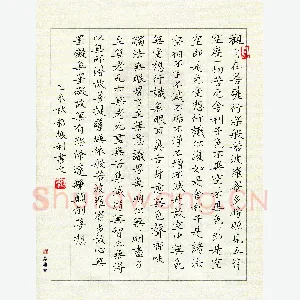 觀自在菩薩行深般若波羅蜜多時照見五蘊
皆空度一切苦厄舍利子色不異空空不異色色即是空
空即是色受想行識亦復如是舍利子是諸法
空相不生不滅不垢不淨不增不減是故空中無色
無受想行識無眼耳鼻舌身意無色聲香味
觸法無眼界乃至無意識界無無明亦無無明盡乃
至無老死亦無老死盡無苦集滅道無智亦無得
以無所得故菩提薩埵依般若波羅蜜多故心無
罣礙無罣礙故無有恐怖遠離顛倒夢想
乙未秋
Shufawang.CN